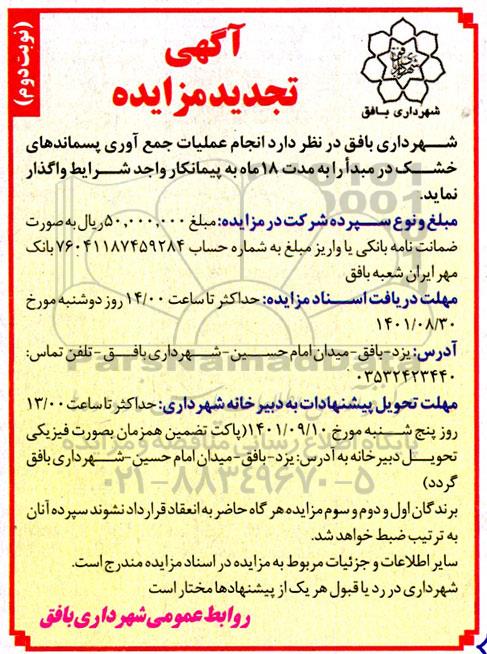 (نوبت دوم)
آگهی
تجدید مزایده
شهرداری بافق
شهرداری بافق در نظر دارد انجام عملیات جمع آوری پسماندهای
خشک در مبدأ را به مدت ۱۸ ماه به پیمانکار واجد شرایط واگذار
نماید.
مبلغ و نوع سپرده شرکت در مزایده: مبلغ ۵۰,۰۰۰,۰۰۰ ریال به صورت
ضمانت نامه بانکی یا واریز مبلغ به شماره حساب ۷۶۰۴۱۱۸۷۴۵۹۲۸۴ بانک
مهر ایران شعبه بافق
مهلت دریافت اسناد مزایده: حداکثر تا ساعت ۱۴/۰۰ روز دوشنبه مورخ
۱۴۰۱/۰۸/۳۰
آدرس: یزد-بافق-میدان امام حسین-شهرداری بافق-تلفن تماس:
۰۳۵۳۲۴۲۳۴۴۰
مهلت تحویل پیشنهادات به دبیرخانه شهرداری: حداکثر تا ساعت ۱۳/۰۰
روز پنج شنبه مورخ ۱۴۰۱/۰۹/۱۰ (پاکت تضمین همزمان بصورت فیزیکی
تحویل دبیرخانه به آدرس: یزد-بافق-میدان امام حسین-شهرداری بافق
گردد)
برندگان اول و دوم و سوم مزایده هر گاه حاضر به انعقاد قرارداد نشوند سپرده آنان
به ترتیب ضبط خواهد شد.
سایر اطلاعات و جزئیات مربوط به مزایده در اسناد مزایده مندرج است.
شهرداری در رد یا قبول هر یک از پیشنهادها مختار است
روابط عمومی شهرداری بافق
ParsNamadData
پایگاه اطلاع رسانی مناقصه و مزایده
۰۲۱-۸۸۳۴۹۶۷۰-۵